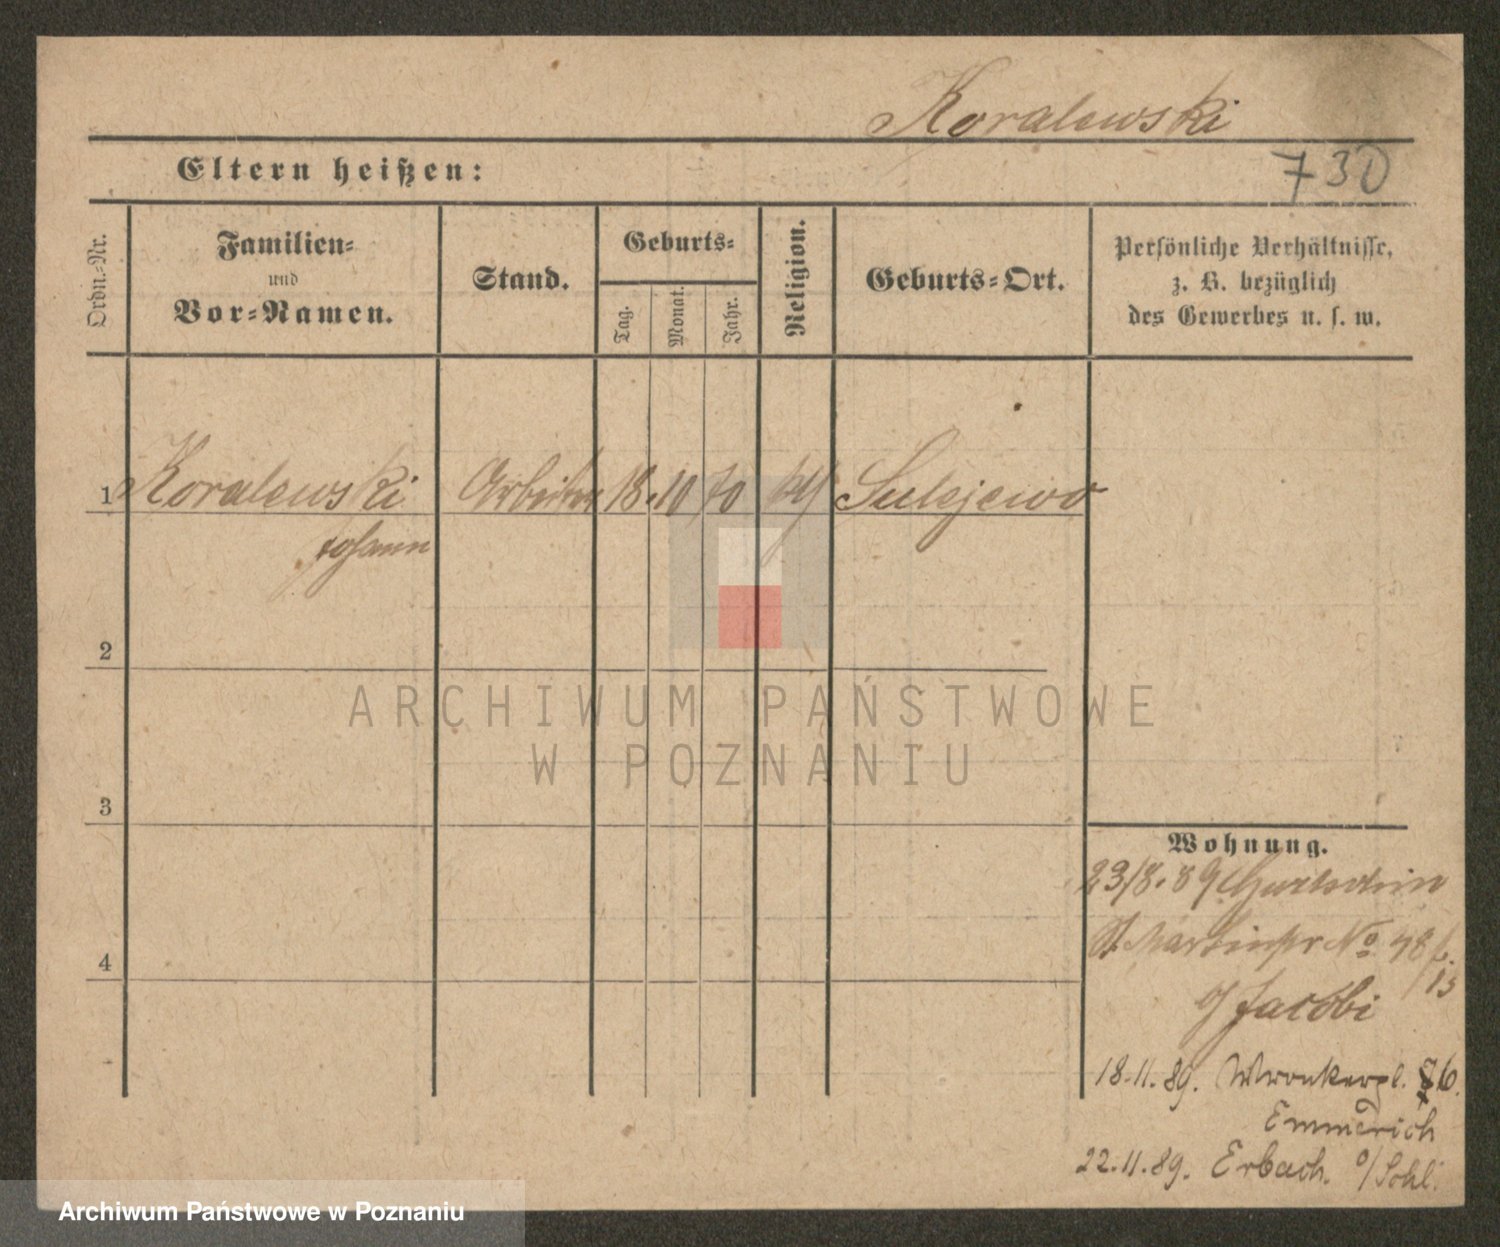 Koralewski
730
Eltern heißen:
Ordn.-Nr.
Familien-
und
Vor-Namen.
Stand.
Geburts-
Tag.
Monat.
Jahr.
Religion.
Geburts-Ort.
Persönliche Verhältnisse,
z. B. bezüglich
des Gewerbes u. s. w.
1 Koralewski Arbeiter 18. 10 70 Sulejewo
Johann
2
3
4
Wohnung.
23/8. 89
St. Martinstr No 48
Jacobi
18.11.89. Wronkerpl. 6.
Emmerich
22.11.89. Erbach.
ARCHIWUM PAŃSTWOWE
W POZNANIU
Archiwum Państwowe w Poznaniu